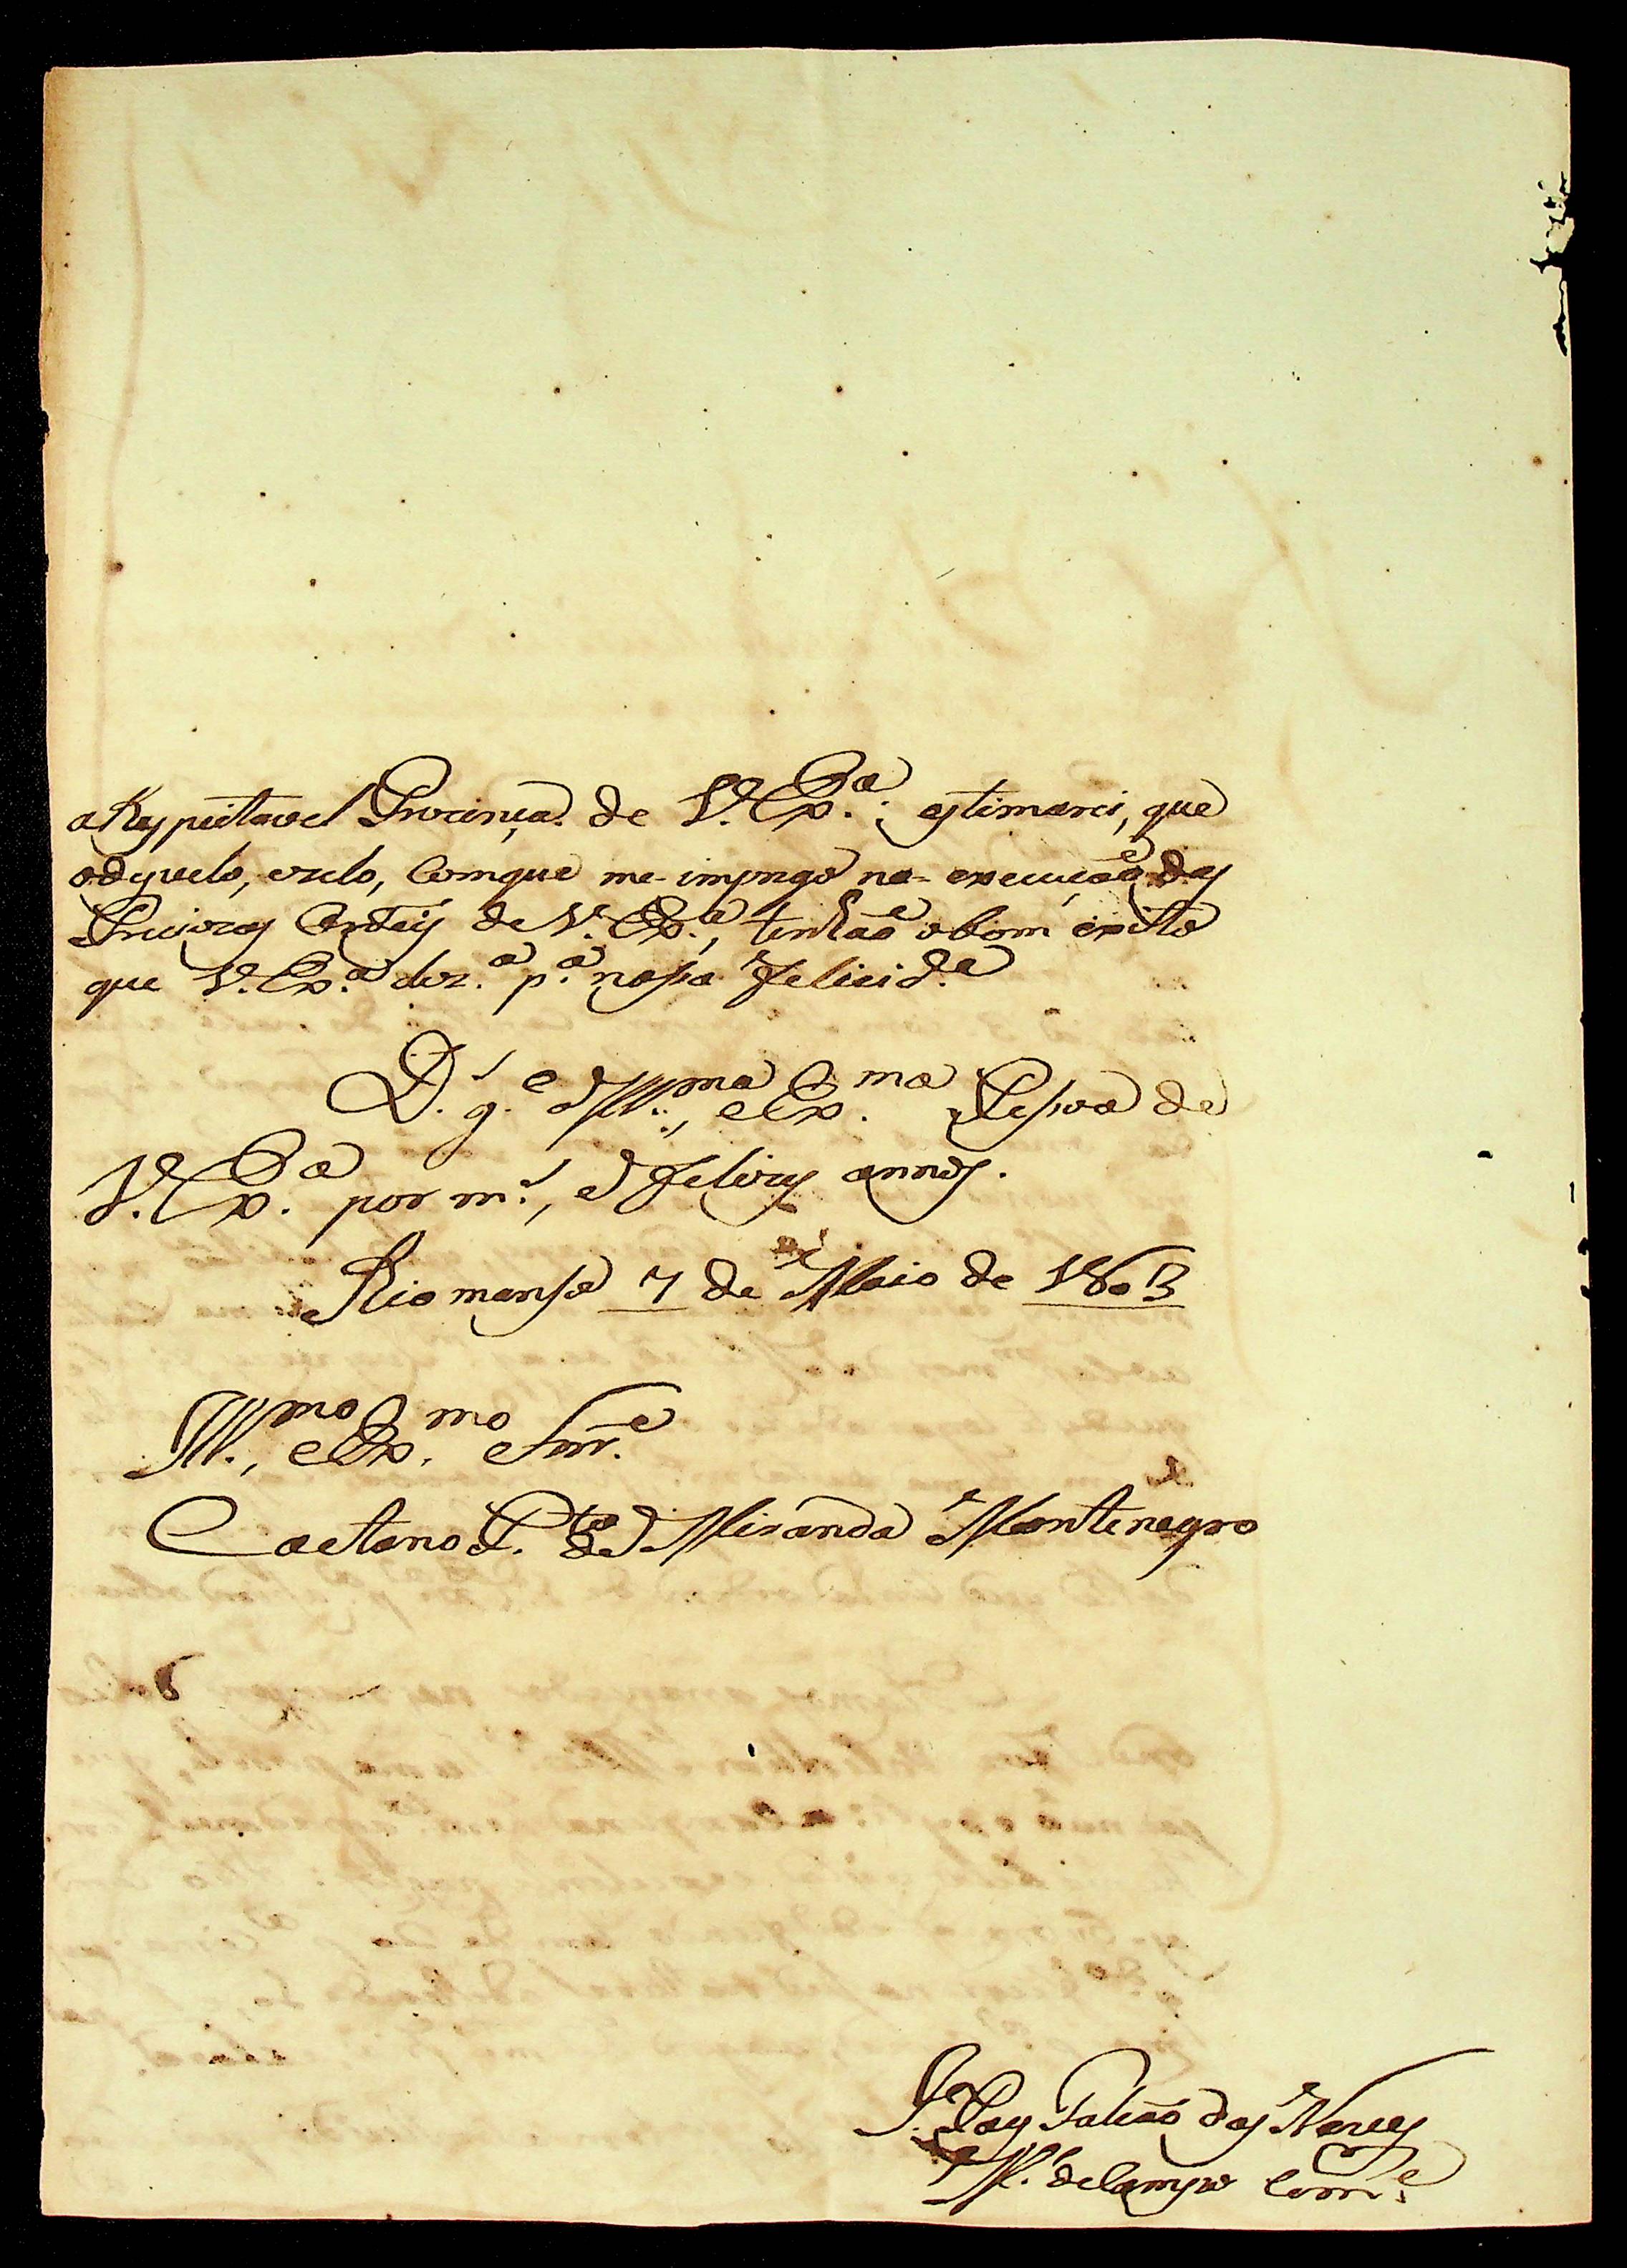 a Respeitavel Prezença de V. Exª.; estimarei, que
o disvelo, e zelo, com que me-imprego na-execução das
Preciozas Ordeis de V. Exª., tenhão o bom exito
que V. Exª. dez.ª p.ª nossa Felicid.e
D.s g.e a Ill.ma, e Ex.ma Pessoa de
V. Exª. por m.s, e Felizes annos.
Rio manso 7 de Maio de 1803
Ill.mo, e Ex.mo Snr.e
Caetano P.to de Miranda Montenegro
J.e Paes Falcão das Neves
M.e de Campo Com.e